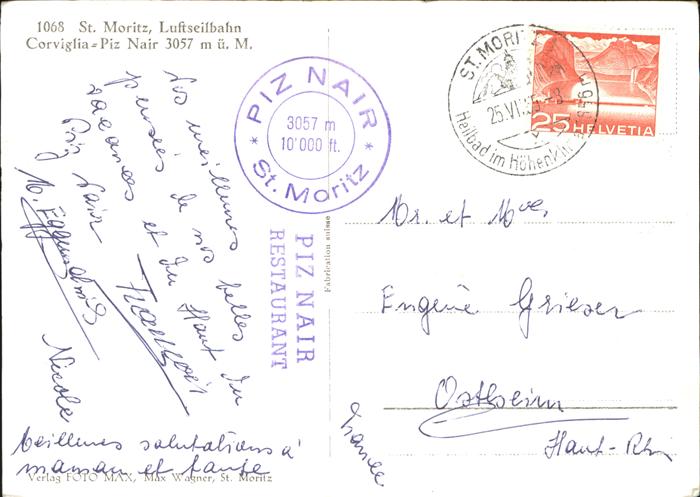 1068 St. Moritz, Luftseilbahn
Corviglia-Piz Nair 3057 m ü. M.
Nos meilleures
pensées de nos belles
vacances et du Haut du
Piz Nair
Nicole
Meilleures salutations à
maman et tante
Verlag FOTO MAX, Max Wagner, St. Moritz
PIZ NAIR
3057 m
10'000 ft.
* St. Moritz *
PIZ NAIR
RESTAURANT
Fabrication suisse
ST. MORITZ
25.VII.
Heilbad im Höhenklima
25 HELVETIA
Mr. et Mme.
Eugène Grieser
Ostheim
Haut-Rhin
France